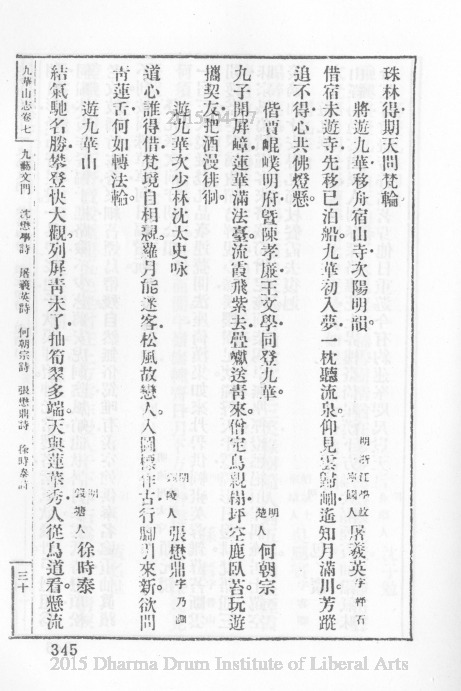 珠林得期天問梵輪
將遊九華移舟宿山寺次陽明韻。 明浙江學政寧國人屠義英字秤石
借宿未遊寺先移已泊船九華初入夢一枕聽流泉仰見雲歸岫遙知月滿川芳蹤
追不得心共佛燈懸。
偕賈崐璞明府曁陳孝廉王文學同登九華 明楚人何朝宗
九子開屏嶂蓮華滿法臺流霞飛紫去疊巘送靑來僧定鳥親榻坪空鹿臥苔玩遊
攜契友把酒漫徘徊。
遊九華次少林沈太史咏 明錢塘人張懋鼎字乃調
道心誰得借梵境自相親蘿月能迷客松風故戀人入圖標作古行腳引來新欲問
靑蓮舌何如轉法輪。
遊九華山 明錢塘人徐時泰
結氣馳名勝攀登快大觀列屏靑未了抽筍翠多端天與蓮華秀人從鳥道看懸流
九華山志卷七 九藝文門 沈懋學詩 屠義英詩 何朝宗詩 張懋鼎詩 徐時泰詩 三十
345
2015 Dharma Drum Institute of Liberal Arts